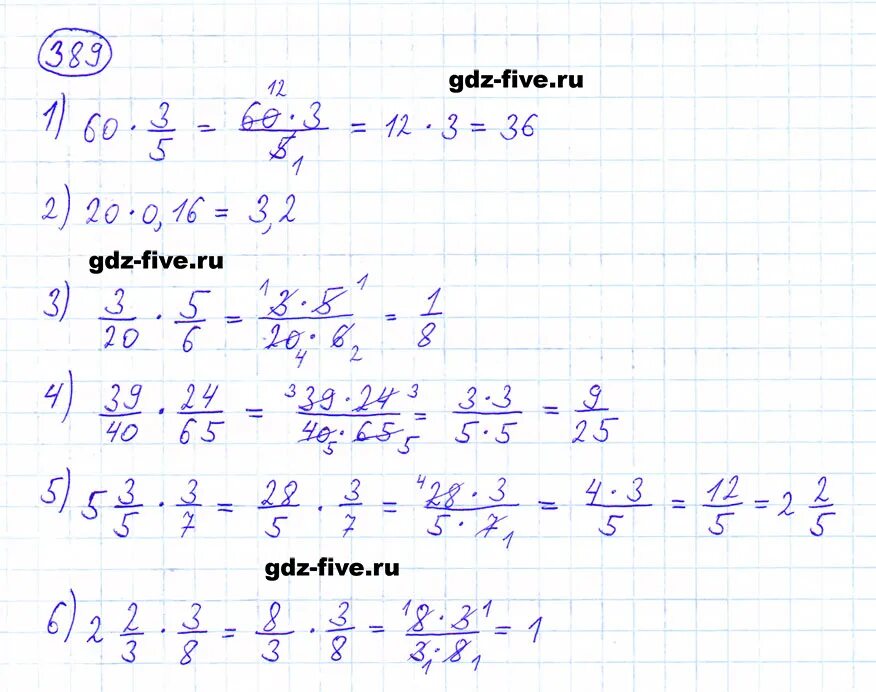 389
gdz-five.ru
1) 60 · 3/5 = 60 · 3 / 5 (12, 1) = 12 · 3 = 36
2) 20 · 0,16 = 3,2
gdz-five.ru
3) 3/20 · 5/6 = 3 · 5 / 20 · 6 (1, 1, 4, 2) = 1/8
4) 39/40 · 24/65 = 39 · 24 / 40 · 65 (3, 3, 5, 5) = 3 · 3 / 5 · 5 = 9/25
5) 5 3/5 · 3/7 = 28/5 · 3/7 = 28 · 3 / 5 · 7 (4, 1) = 4 · 3 / 5 = 12/5 = 2 2/5
gdz-five.ru
6) 2 2/3 · 3/8 = 8/3 · 3/8 = 8 · 3 / 3 · 8 (1, 1, 1, 1) = 1